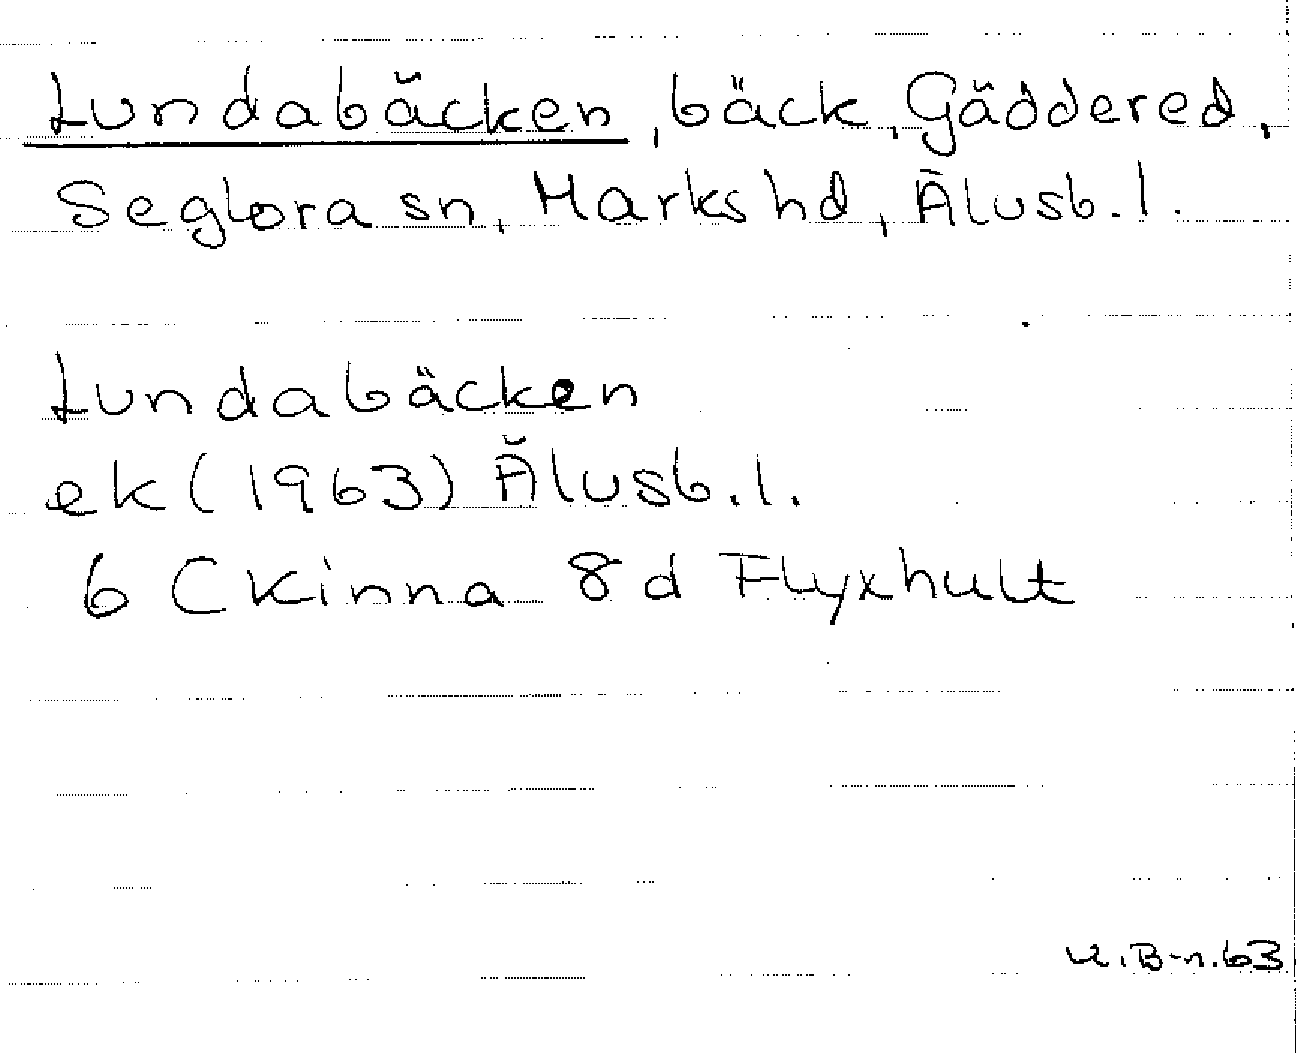 Lundabäcken, bäck, Gäddered,
Seglora sn, Marks hd, Älvsb. l.
Lundabäcken
ek (1963) Älvsb. l.
6 C Kinna 8 d Flyxhult
K. B-n. 63